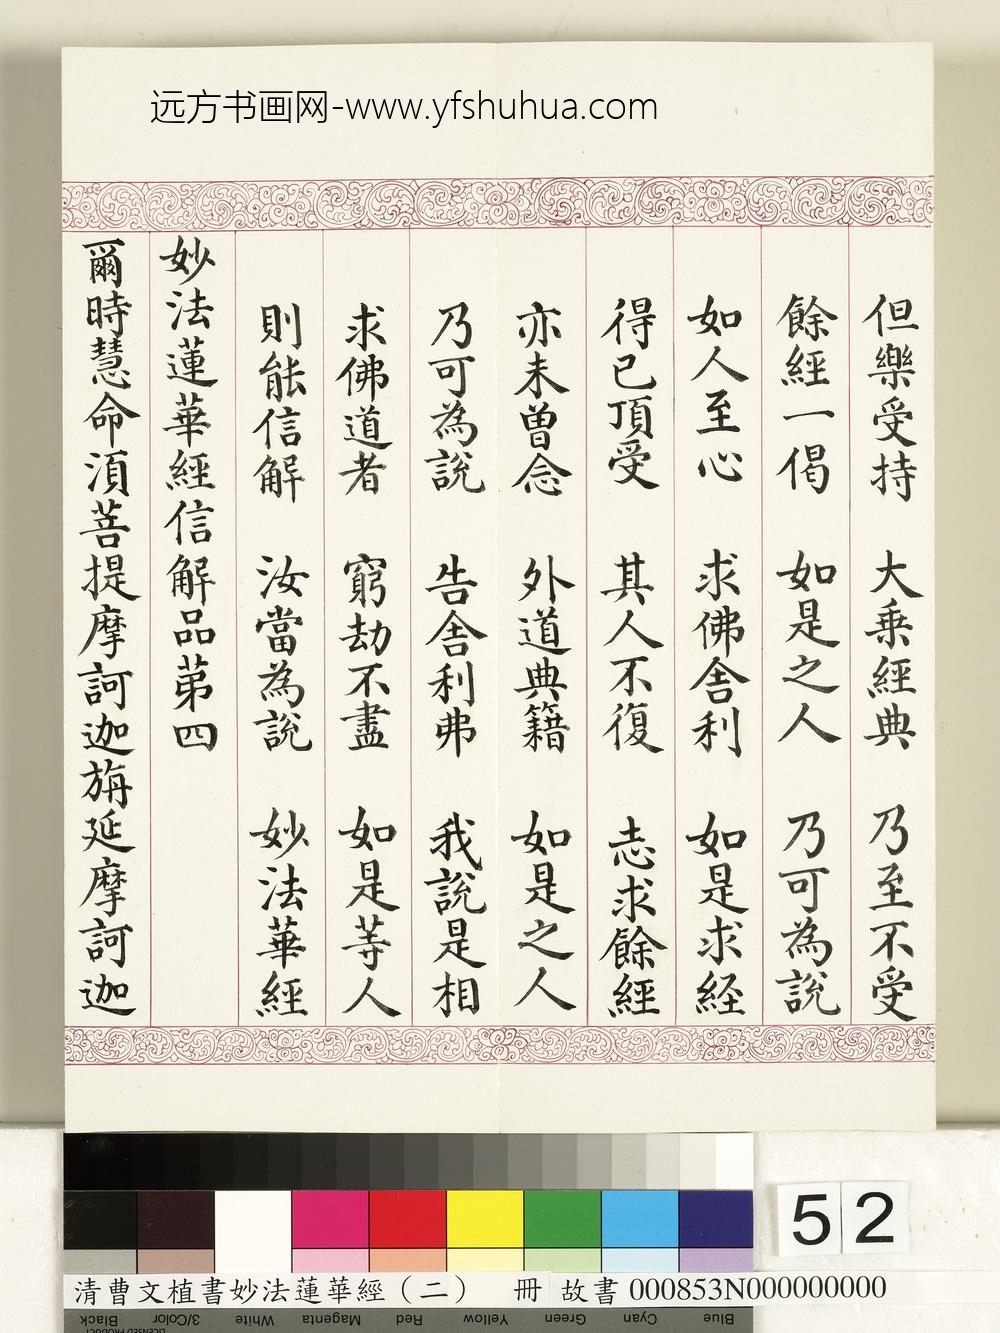 远方书画网-www.yfshuhua.com
但樂受持 大乗經典 乃至不受
餘經一偈 如是之人 乃可為說
如人至心 求佛舎利 如是求経
得已頂受 其人不復 志求餘經
亦未曽念 外道典籍 如是之人
乃可為說 告舎利弗 我說是相
求佛道者 窮劫不盡 如是等人
則能信解 汝當為說 妙法華經
妙法蓮華經信解品苐四
爾時慧命湏菩提摩訶迦旃延摩訶迦
52
清曹文植書妙法蓮華經（二） 冊 故書 000853N000000000
Black 3/Color White Magenta Red Yellow Green Cyan Blue
LICENSED PRODUCT